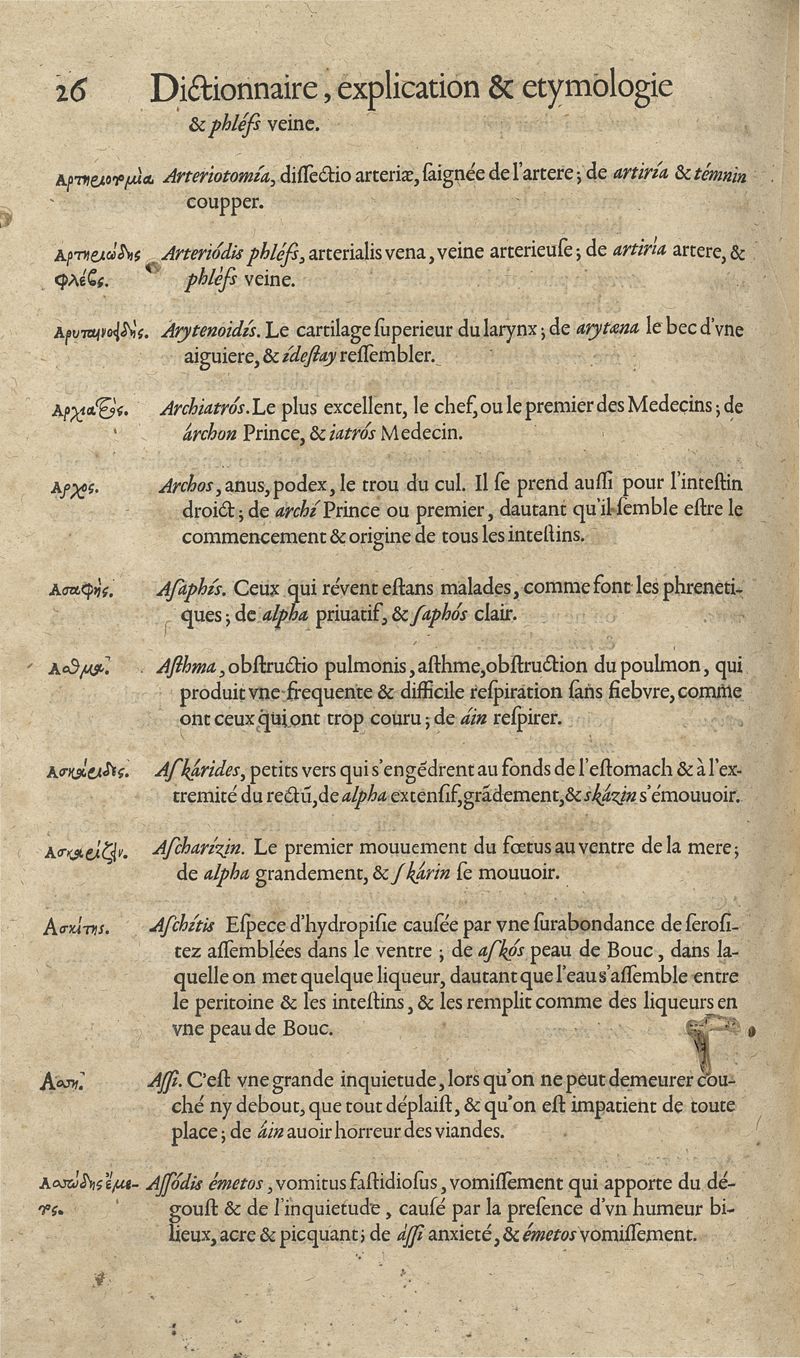 26 Dictionnaire, explication & etymologie
& phléſs veine.
Αρτηριοτομία. Arteriotomía, diſſectio arteriæ, ſaignée de l'artere; de artiría & témnin
coupper.
Αρτηριώδης Arteriódis phléſs, arterialis vena, veine arterieuſe; de artiría artere, &
φλέϐς. phléſs veine.
Αρυταινοειδής. Arytenoidís. Le cartilage ſuperieur du larynx; de arytæna le bec d'vne
aiguiere, & ídeſtay reſſembler.
Αρχιατρός. Archiatrós. Le plus excellent, le chef, ou le premier des Medecins; de
árchon Prince, & iatrós Medecin.
Αρχος. Archos, anus, podex, le trou du cul. Il ſe prend auſſi pour l'inteſtin
droict; de archí Prince ou premier, dautant qu'il ſemble eſtre le
commencement & origine de tous les inteſtins.
Ασαφής. Aſaphís. Ceux qui révent eſtans malades, comme font les phreneti-
ques; de alpha priuatif, & ſaphós clair.
Ασθμα. Aſthma, obſtructio pulmonis, aſthme, obſtruction du poulmon, qui
produit vne frequente & difficile reſpiration ſans fiebvre, comme
ont ceux qui ont trop couru; de áin reſpirer.
Ασκάριδες. Aſkárides, petits vers qui s'engẽdrent au fonds de l'eſtomach & à l'ex-
tremité du rectũ, de alpha extenſif, grãdement, & skázin s'émouuoir.
Ασκαρίζειν. Aſcharízin. Le premier mouuement du fœtus au ventre de la mere;
de alpha grandement, & ſkárin ſe mouuoir.
Ασκίτης. Aſchítis Eſpece d'hydropiſie cauſée par vne ſurabondance de ſeroſi-
tez aſſemblées dans le ventre; de aſkós peau de Bouc, dans la-
quelle on met quelque liqueur, dautant que l'eau s'aſſemble entre
le peritoine & les inteſtins, & les remplit comme des liqueurs en
vne peau de Bouc.
Αση. Aſſi. C'eſt vne grande inquietude, lors qu'on ne peut demeurer cou-
ché ny debout, que tout déplaiſt, & qu'on eſt impatient de toute
place; de áin auoir horreur des viandes.
Ασσώδης ἔμε- Aſſódis émetos, vomitus faſtidioſus, vomiſſement qui apporte du dé-
τος. gouſt & de l'inquietude, cauſé par la preſence d'vn humeur bi-
lieux, acre & picquant; de áſſi anxieté, & émetos vomiſſement.